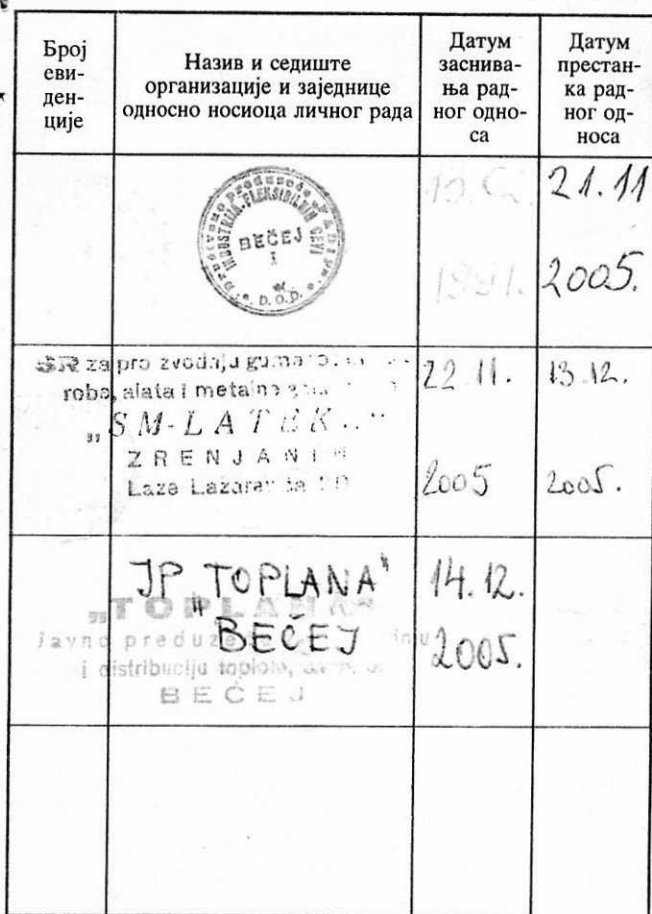 Број
еви-
ден-
ције
Назив и седиште
организације и заједнице
односно носиоца личног рада
Датум
заснива-
ња рад-
ног одно-
са
Датум
престан-
ка рад-
ног од-
носа
Društveno Preduzeće
INDUSTRIJA FLEKSIBILNIH CEVI
BEČEJ
I
D.O.D.
1991.
21.11
2005.
SR za pro zvodnju
robe, alata i metalne
"SM-LATEK"
ZRENJANIN
Laze Lazarevića
22 11.
2005
13.12.
2005.
JP "TOPLANA"
BEČEJ
14.12.
2005.
"TOPLANA"
javno preduzeće
i distribuciju toplote,
BEČEJ